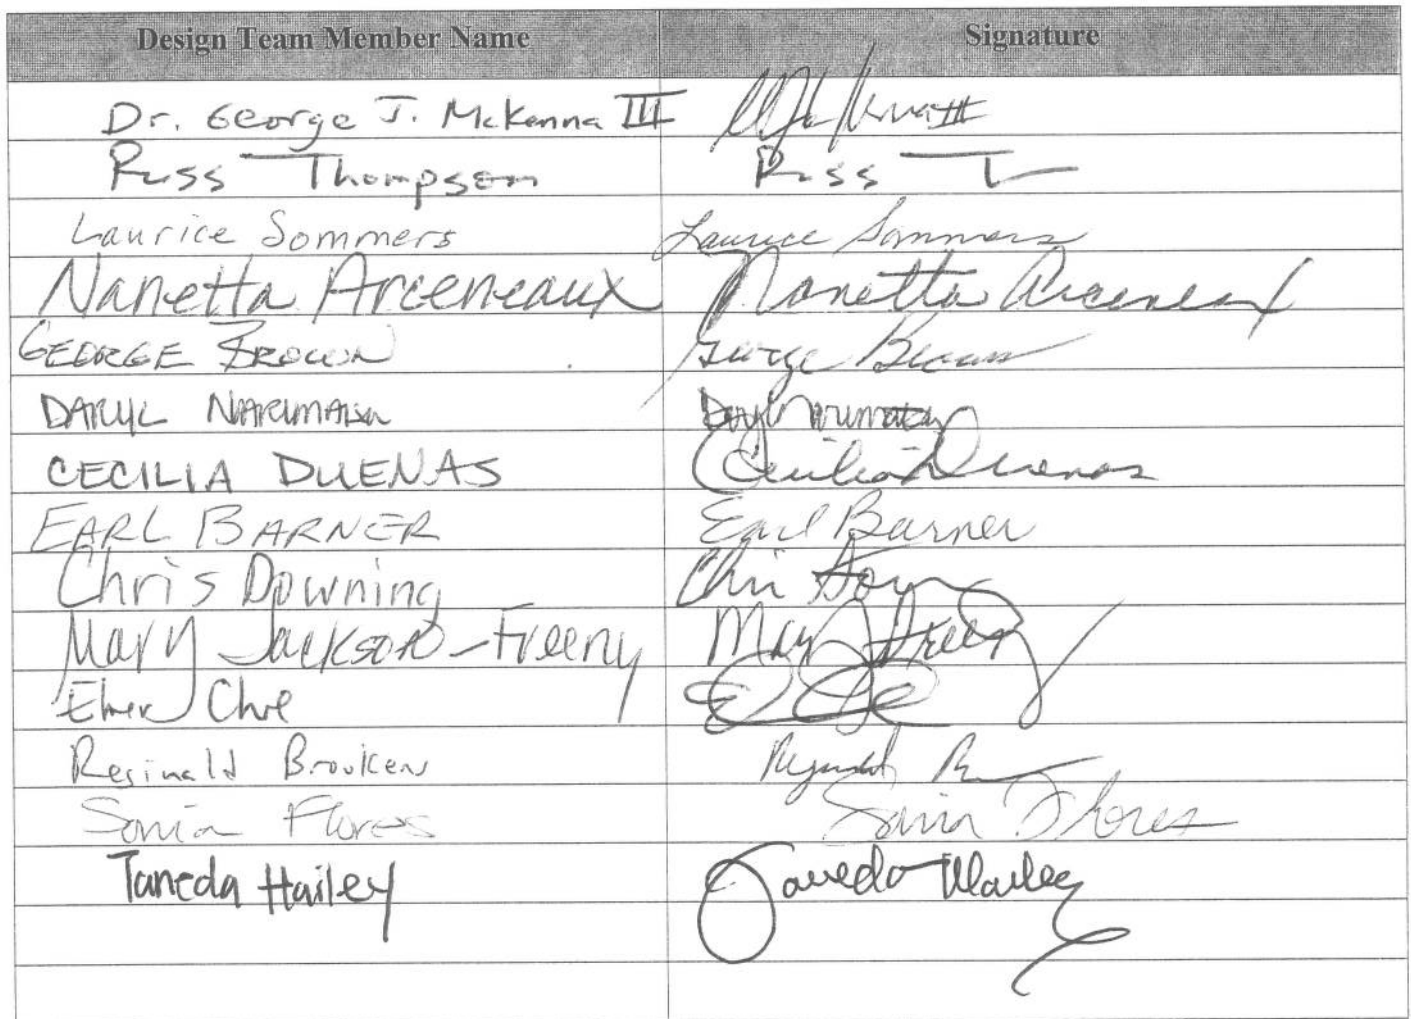 Design Team Member Name Signature
Dr. George J. McKenna III
Russ Thompson Russ T
Laurice Sommers Laurice Sommers
Nanetta Arceneaux Nanetta Arceneaux
GEORGE BROWN George Brown
DARYL NARIMATSU Daryl Narimatsu
CECILIA DUENAS Cecilia Duenas
EARL BARNER Earl Barner
Chris Downing Chris
Mary Jackson-Freeny Mary
Reginald Brookens
Sonia Flores Sonia Flores
Taneda Hailey Taneda Hailey